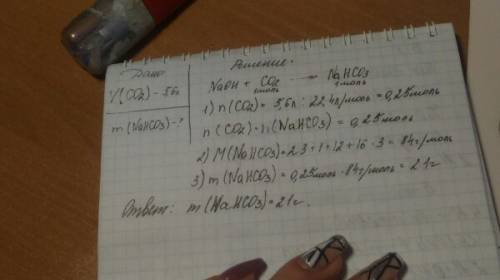 Дано
Решение.
V(CO2) - 5,6л
m(NaHCO3) - ?
NaOH + CO2 → NaHCO3
1моль 1моль
1) n(CO2) = 5,6л : 22,4л/моль = 0,25моль
n(CO2) = n(NaHCO3) = 0,25моль
2) M(NaHCO3) = 23 + 1 + 12 + 16 · 3 = 84г/моль
3) m(NaHCO3) = 0,25моль · 84г/моль = 21г
Ответ: m(NaHCO3) = 21г.